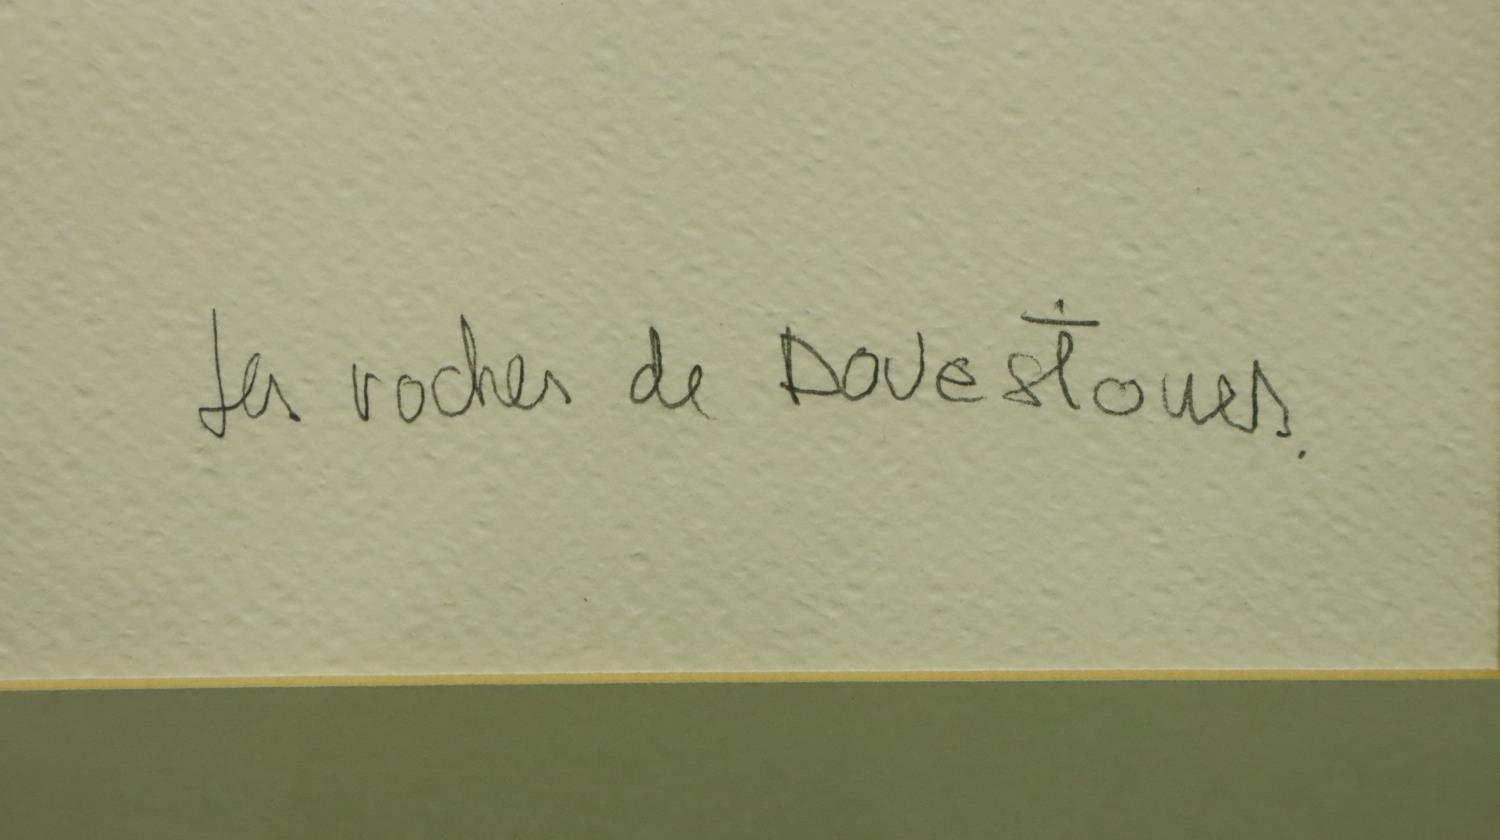 Les roches de Dovestones.